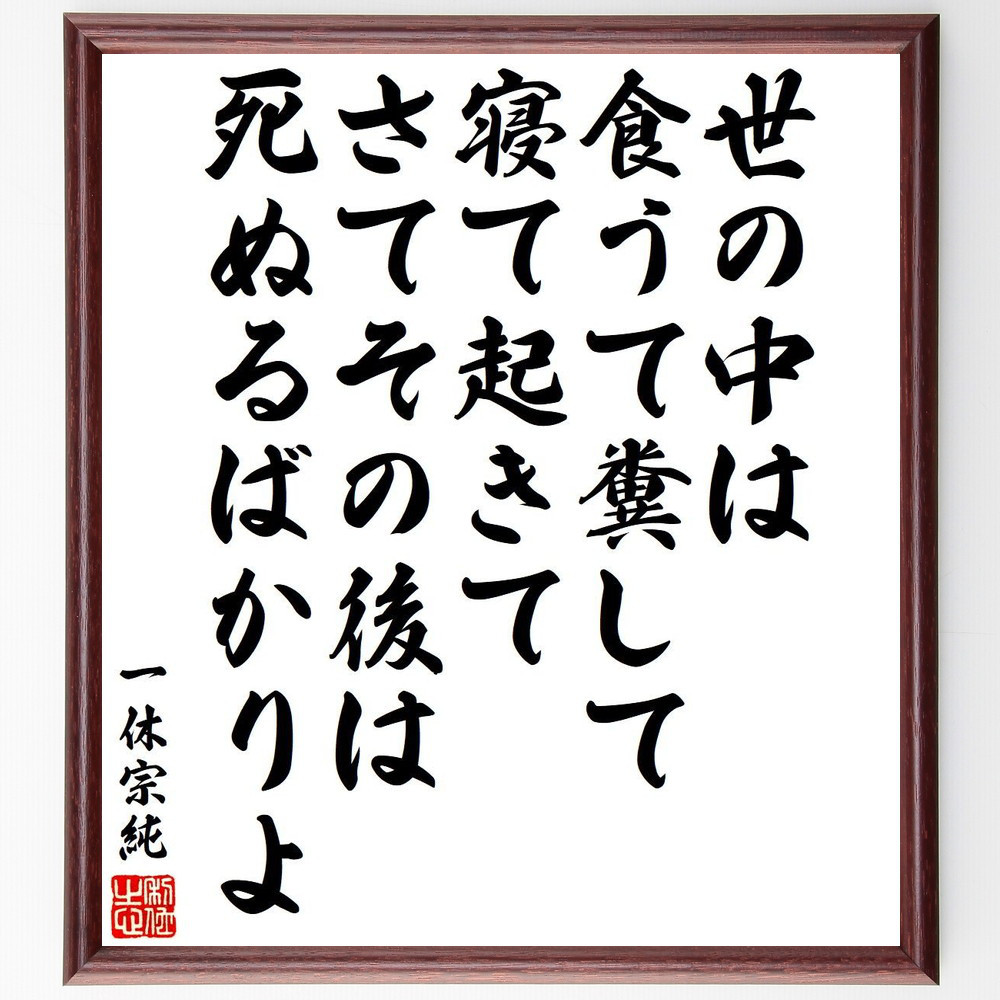 世の中は
食うて糞して
寝て起きて
さてその後は
死ぬるばかりよ
一休宗純